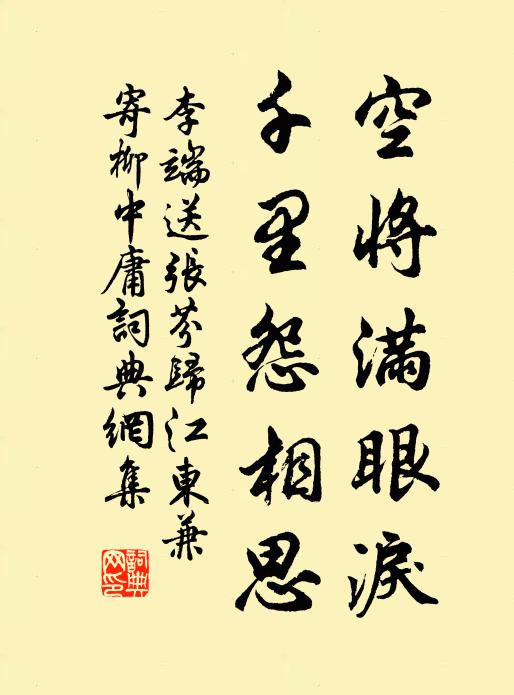 空將滿眼淚
千里怨相思
李端送張芬歸江東兼
寄柳中庸詞典網集
詞典网印